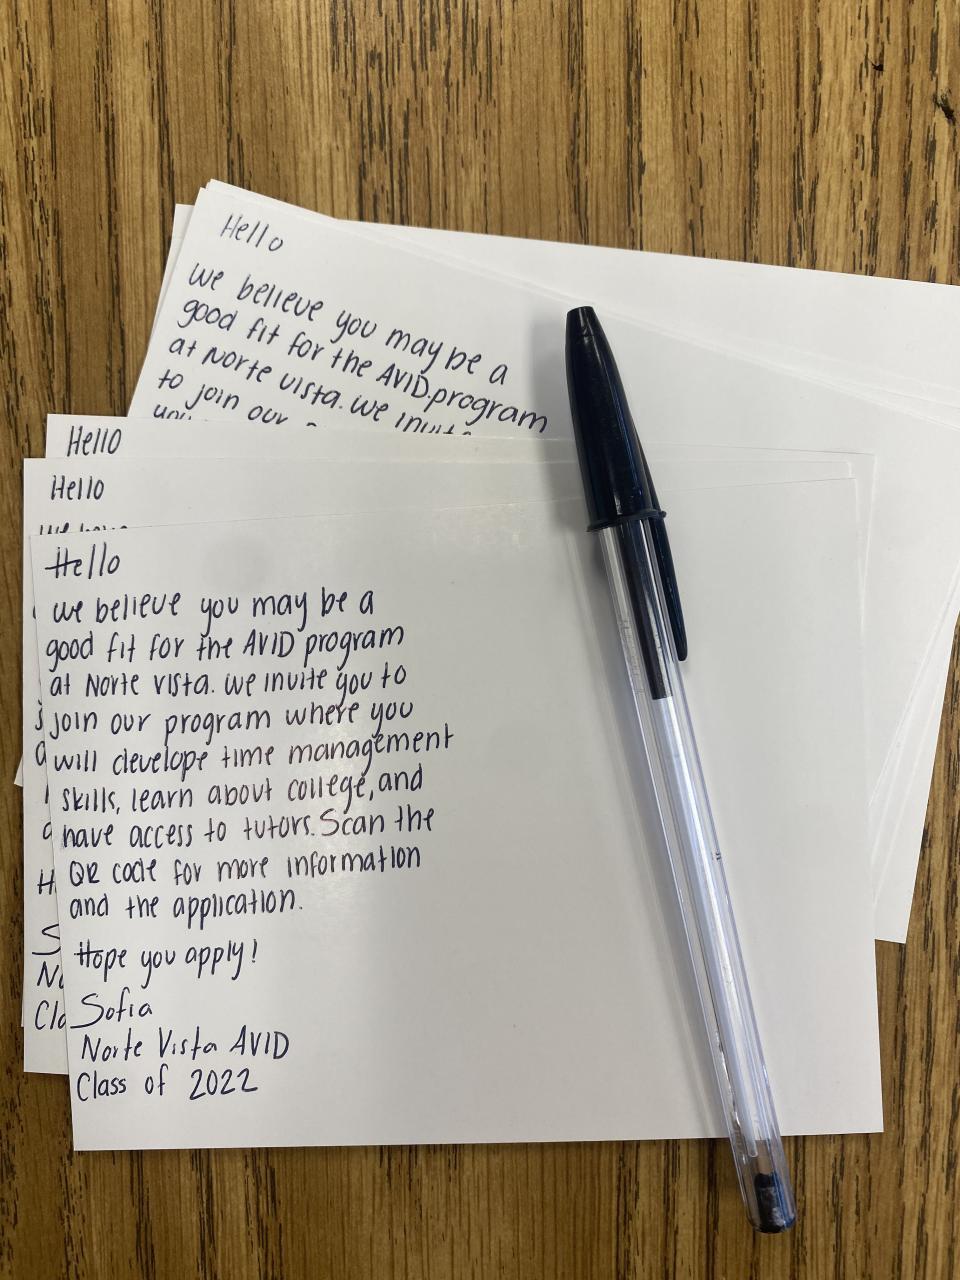 Hello
we believe you may be a
good fit for the AVID program
at Norte Vista. we invite
to join our
Hello
Hello
we have
Hello
we believe you may be a
good fit for the AVID program
at Norte Vista. we invite you to
join our program where you
will develope time management
skills, learn about college, and
have access to tutors. Scan the
QR code for more information
and the application.
Hope you apply!
Sofia
Norte Vista AVID
Class of 2022